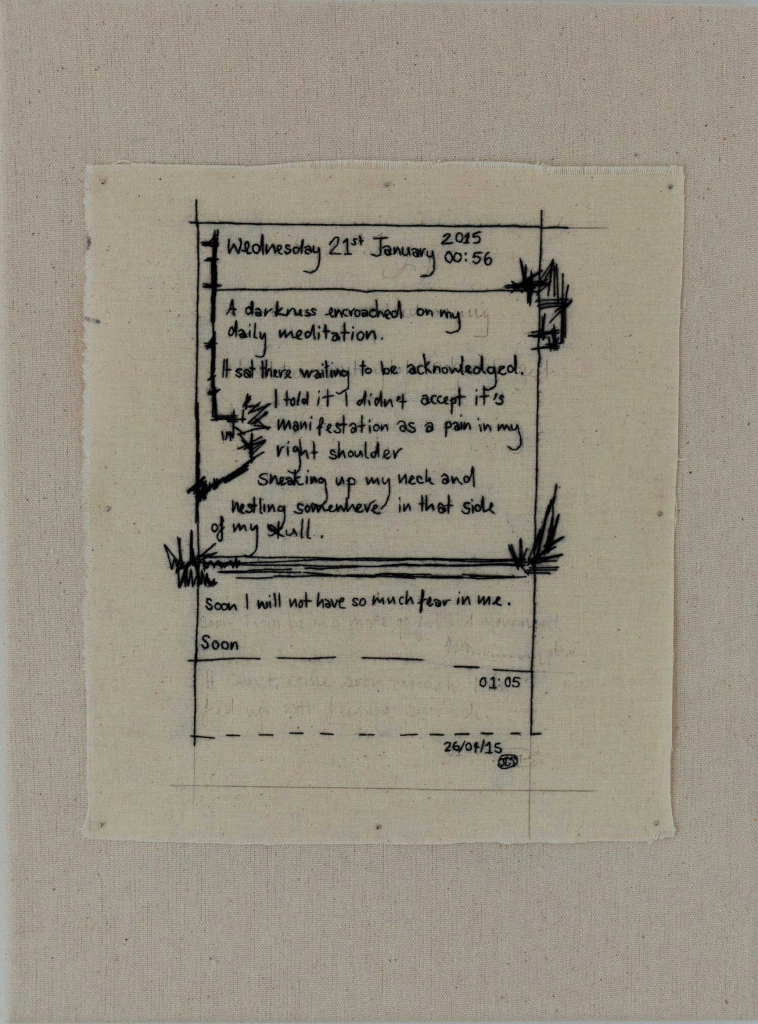 Wednesday 21st January 2015
00:56
A darkness encroached on my
daily meditation.
It sat there waiting to be acknowledged.
I told it I didn't accept it's
manifestation as a pain in my
right shoulder
sneaking up my neck and
nestling somewhere in that side
of my skull.
Soon I will not have so much fear in me.
Soon
01:05
26/01/15